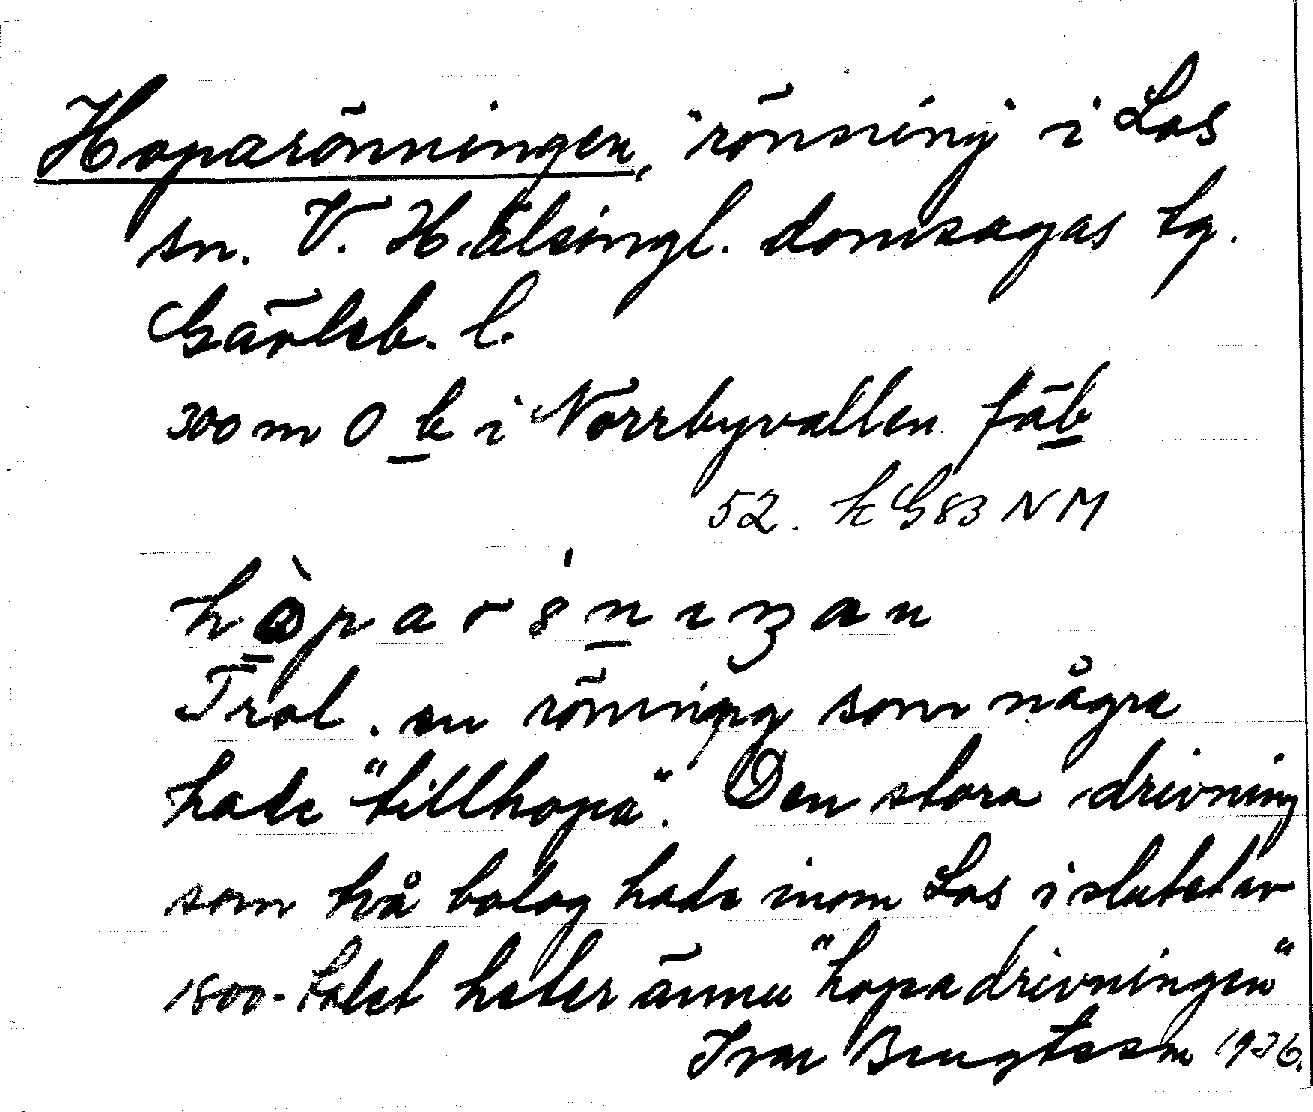 Hoparönningen, rönning i Los
sn. V. Hälsingl. domsagas tg.
Gävleb. l.
300 m O b i Norrbyvallen fäb
52. k G 83 NM
Trol. en rönning som några
hade "tillhopa". Den stora drivning
som två bolag hade inom Los i slutet av
1800-talet heter ännu "hopadrivningen"
Ivar Bengtsson 1926.